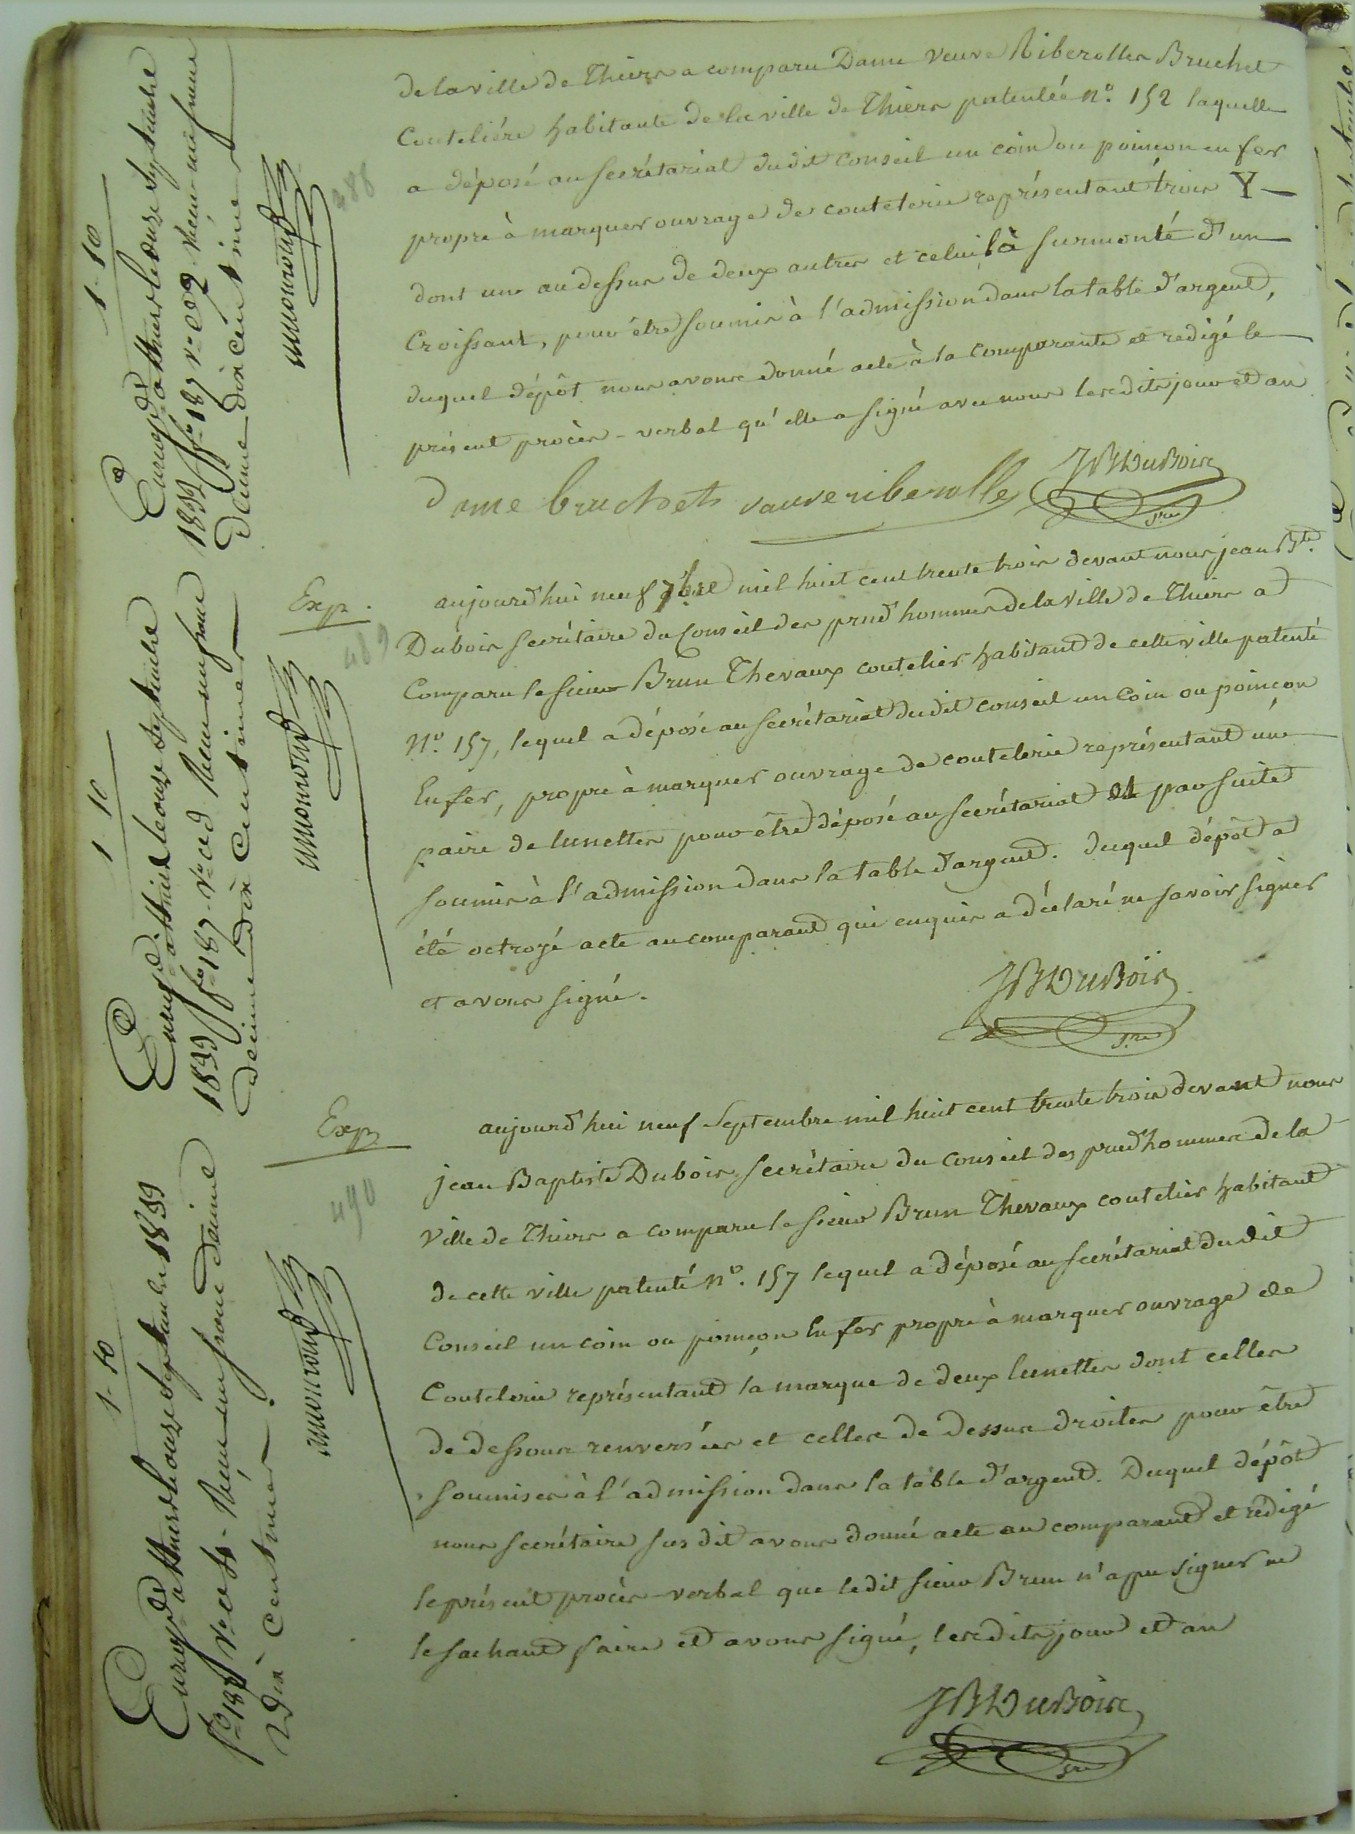 de la ville de Thiers a comparu Dame veuve Riberolles Bruchet
Couteliére habitante de la ville de Thiers patentée N.º 152 laquelle
a déposé au secrétariat du dit Conseil un coin ou poinçon en fer
propre à marquer ouvrage de coutelerie représentant trois Y
dont un au dessus de deux autres et celui là surmonté d'un
Croissant, pour être soumis à l'admission dans la table d'argent,
duquel dépôt nous avons donné acte à la comparante et redigé le
présent procès-verbal qu'elle a signé avec nous lesdits jour et an
dame bruchets vauve riberolle JBDuBois
Sre
488
1-10
Enregé. à Thiers le onze septembre
1833 fº 187 Vº Reçu un franc
Décime dix centimes
Exp.
489
aujourd'hui neuf 7bre mil huit cent trente trois devant nous jean Bte.
Dubois secrétaire du Conseil des prud'hommes de la ville de Thiers a
Comparu le sieur Brun Thevaux coutelier habitant de cette ville patenté
Nº. 157, lequel a déposé au secrétariat du dit conseil un coin ou poinçon
En fer, propre à marquer ouvrage de coutelerie représentant une
paire de lunettes pour être déposé au secrétariat et par suite
soumis à l'admission dans la table d'argent. duquel dépôt a
été octroyé acte au comparant qui enquis a déclaré ne savoir signer
et avons signé.
JBDuBois
Sre
1 10
Enregé. à Thiers le onze septembre
1833 fº 187 Vº Reçu un franc
décime dix centimes
Exp.
490
aujourd'hui neuf Septembre mil huit cent trente trois devant nous
jean Baptiste Dubois, secrétaire du conseil des prud'hommes de la
Ville de Thiers a comparu le sieur Brun Thevaux coutelier habitant
de cette ville patenté Nº. 157 lequel a déposé au secrétariat du dit
Conseil un coin ou poinçon En fer propre à marquer ouvrage de
Coutelerie représentant la marque de deux lunettes dont celles
de dessous renversées et celles de dessus droites pour être
soumises à l'admission dans la table d'argent. Duquel dépôt
nous secrétaire sus dit avons donné acte au comparant et rédigé
le présent procès-verbal que le dit sieur Brun n'a pu signer ne
le sachant faire et avons signé, lesdits jour et an
JBDuBois
Sre
1-10
Enregé. à Thiers le onze septembre 1833
fº 187 Vº Reçu un franc décime
Dix centimes.